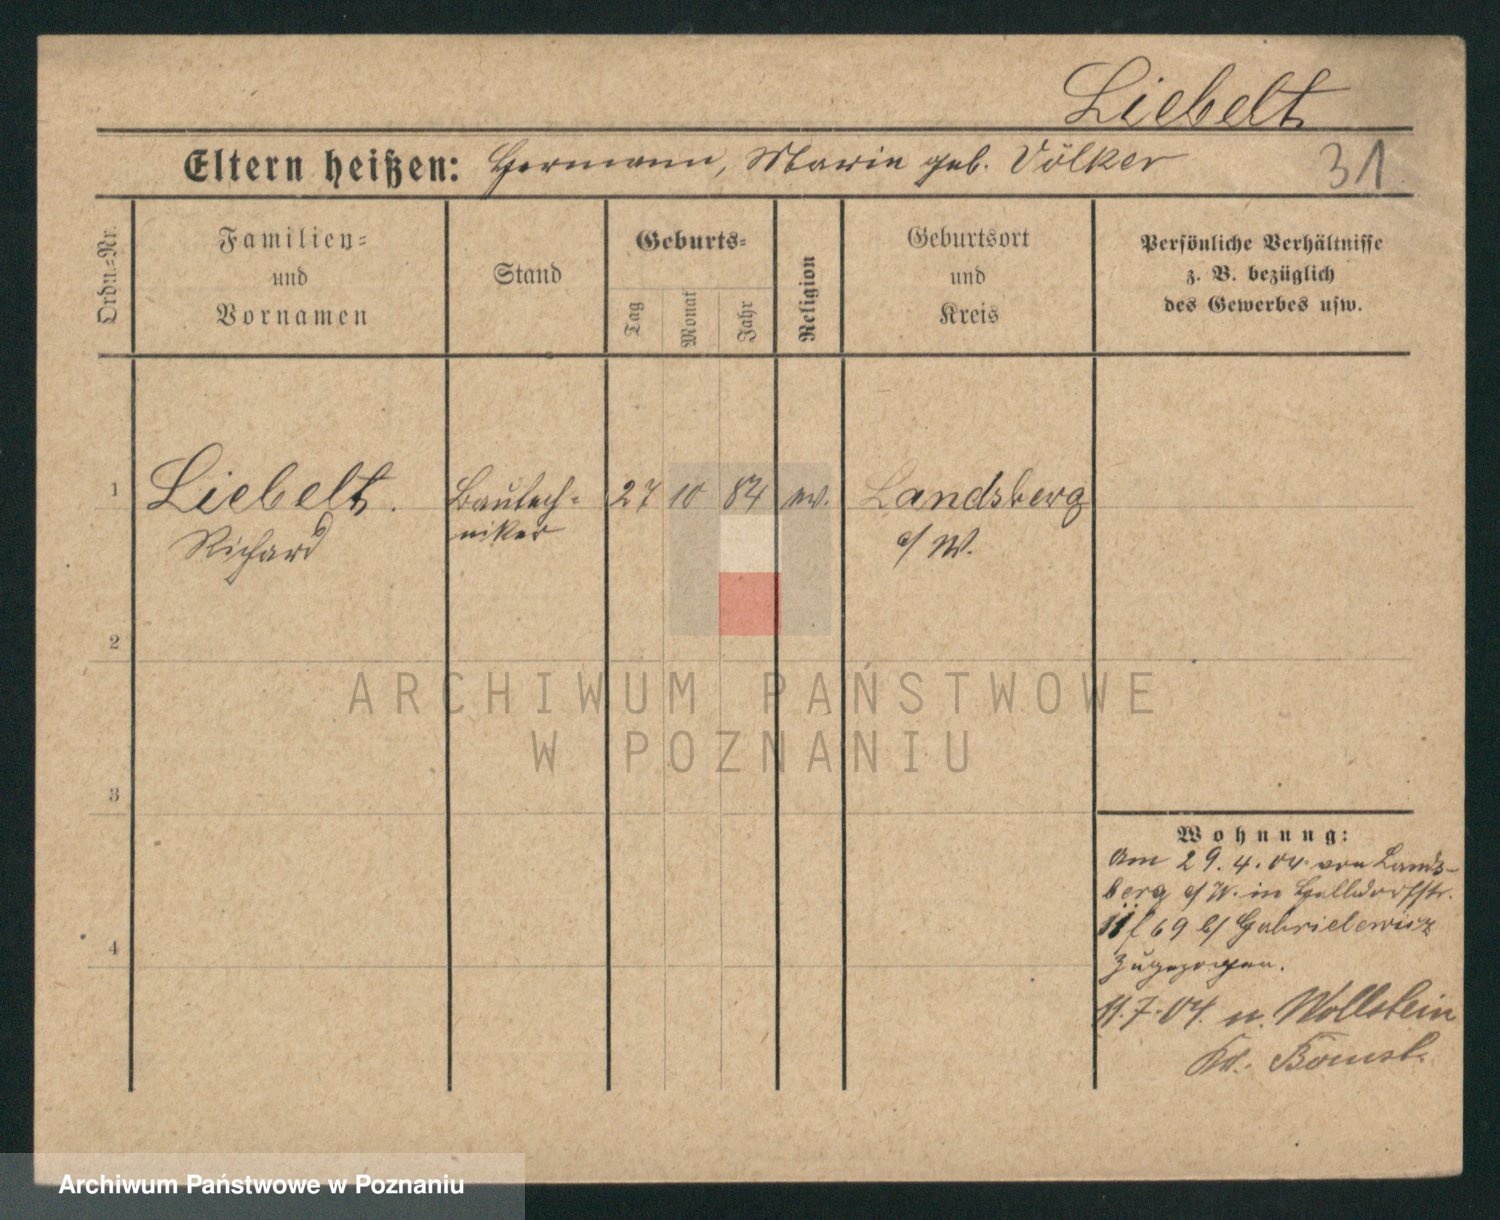 Liebelt
Eltern heißen: Hermann, Marie geb. Völker
31
Ordn.=Nr.
Familien=
und
Vornamen
Stand
Geburts=
Tag
Monat
Jahr
Religion
Geburtsort
und
Kreis
Persönliche Verhältnisse
z. B. bezüglich
des Gewerbes usw.
1
Liebelt.
Richard
Bautech=
niker
27
10
84
ev.
Landsberg
a/W.
2
3
4
Wohnung:
Am 29.4.04 von Lands-
berg a/W. in
69 b/ Gabrielewicz
zugezogen.
11.7.04. n. Wollstein
Kr. Bomst.
ARCHIWUM PAŃSTWOWE
W POZNANIU
Archiwum Państwowe w Poznaniu